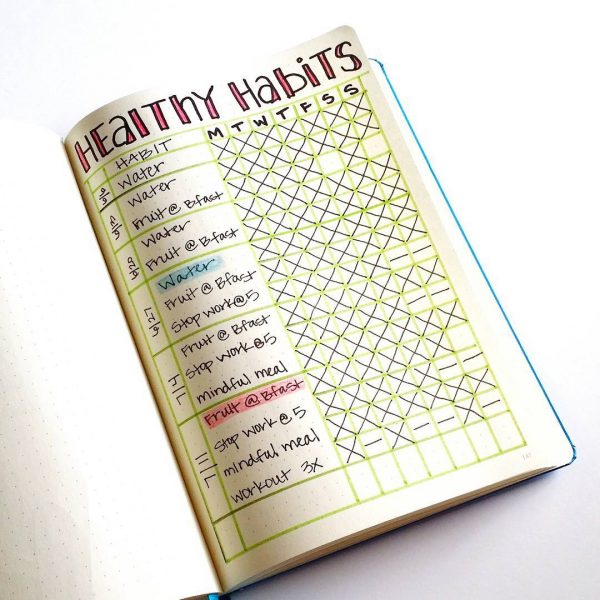 HEALTHY HABITS
HABIT M T W T F S S
6/6 Water
6/13 Water
Fruit @ Bfast
6/20 Water
Fruit @ Bfast
6/27 Water
Fruit @ Bfast
Stop work@5
7/4 Fruit @ Bfast
Stop work@5
mindful meal
7/11 Fruit @ Bfast
Stop work @ 5
mindful meal
workout 3x